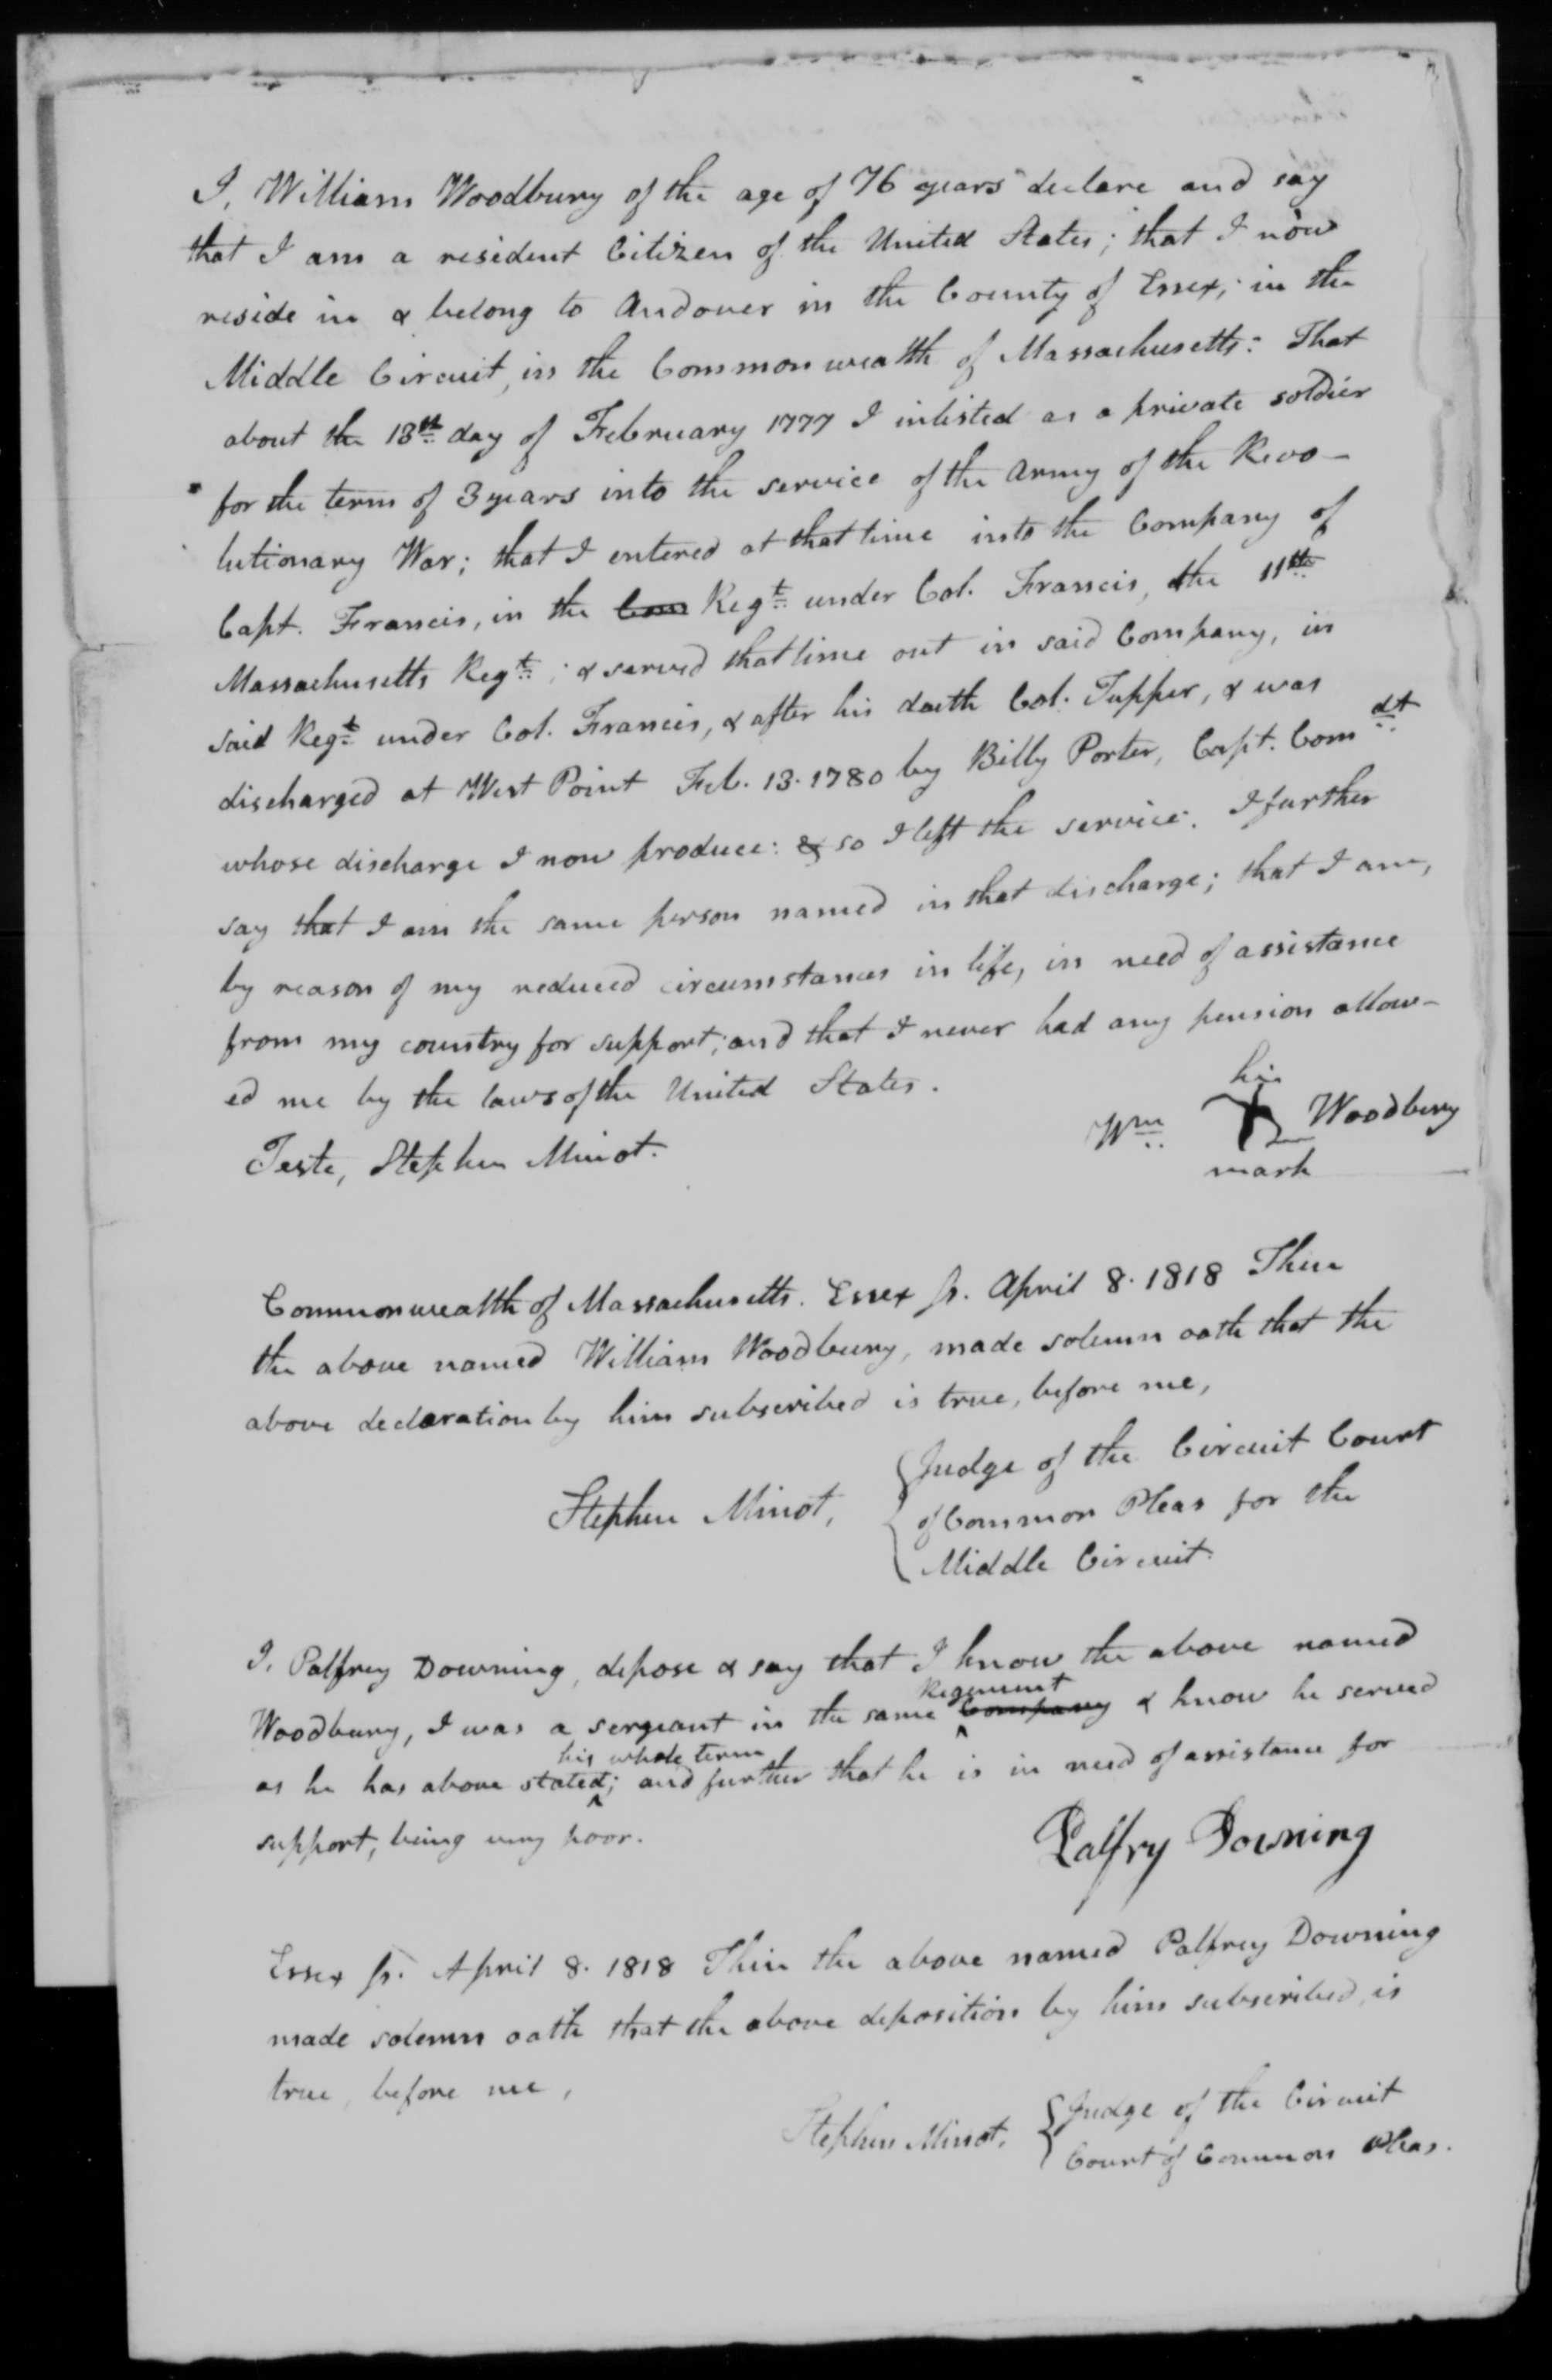 I, William Woodbury of the age of 76 years declare and say
that I am a resident Citizen of the United States; that I now
reside in & belong to Andover in the County of Essex, in the
Middle Circuit, in the Commonwealth of Massachusetts: That
about the 13th day of February 1777 I inlisted as a private soldier
for the term of 3 years into the service of the Army of the Revo-
lutionary War; that I entered at that time into the Company of
Capt. Francis, in the Com Regt under Col. Francis, the 11th
Massachusetts Regt; & served that time out in said Company, in
said Regt under Col. Francis, & after his death Col. Tupper, & was
discharged at West Point Feb. 13. 1780 by Billy Porter, Capt. Comdt
whose discharge I now produce: & so I left the service. I further
say that I am the same person named in that discharge; that I am,
by reason of my reduced circumstances in life, in need of assistance
from my country for support; and that I never had any pension allow-
ed me by the laws of the United States.
his
Wm X Woodbury
mark
Teste, Stephen Minot.
Commonwealth of Massachusetts. Essex ss. April 8. 1818 Then
the above named William Woodbury, made solemn oath that the
above declaration by him subscribed is true, before me,
Stephen Minot, { Judge of the Circuit Court
of Common Pleas for the
Middle Circuit.
I, Palfrey Downing, depose & say that I know the above named
Regiment
Woodbury, I was a sergeant in the same Company & know he served
his whole term
as he has above stated; and further that he is in need of assistance for
support, being very poor.
Palfry Downing
Essex ss. April 8. 1818 Then the above named Palfrey Downing
made solemn oath that the above deposition by him subscribed, is
true, before me,
Stephen Minot, { Judge of the Circuit
Court of Common Pleas.